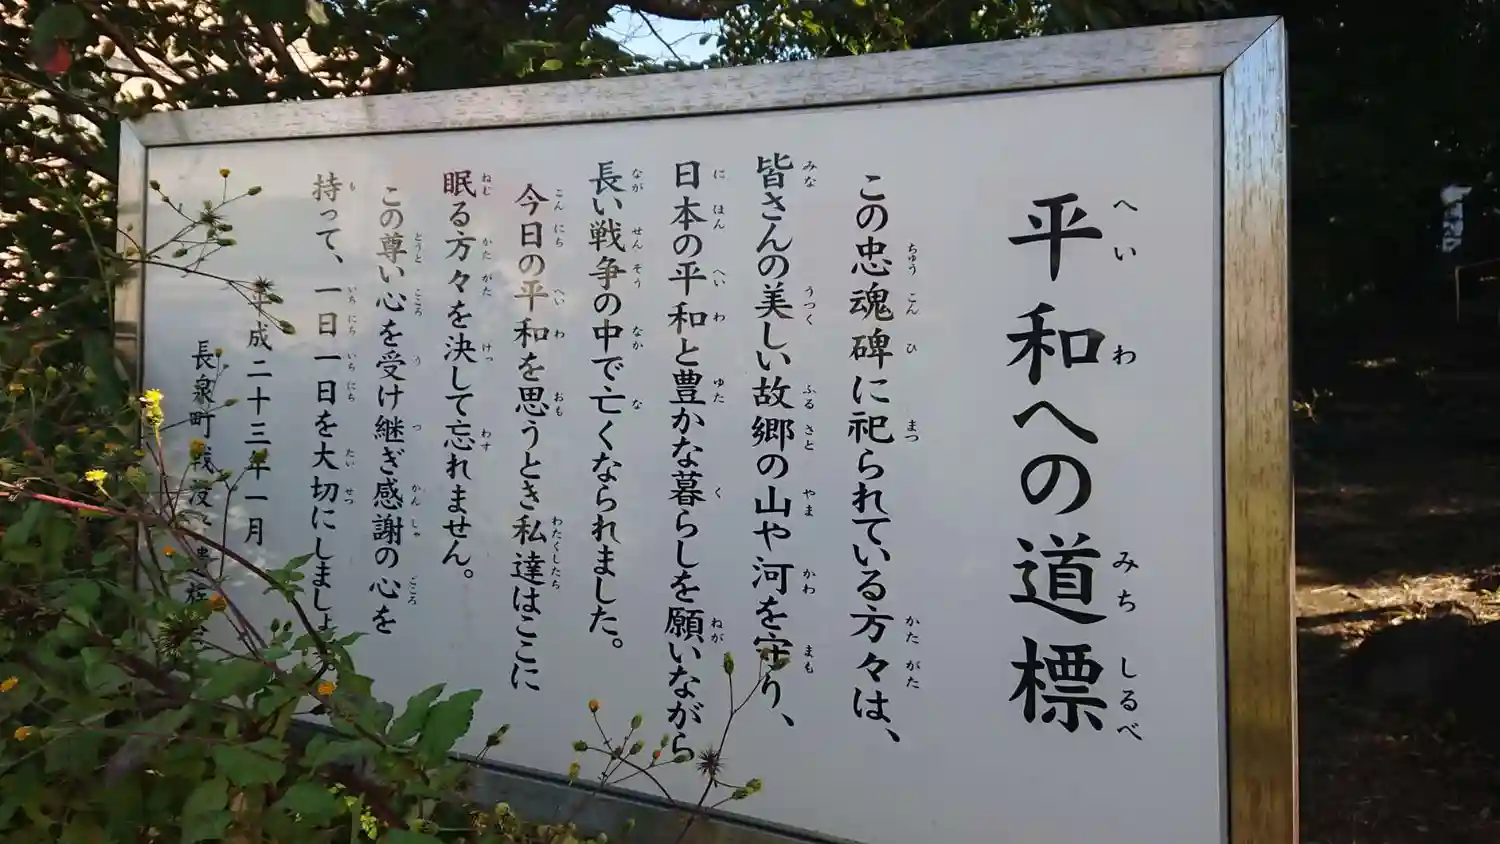 平和への道標
この忠魂碑に祀られている方々は、
皆さんの美しい故郷の山や河を守り、
日本の平和と豊かな暮らしを願いながら
長い戦争の中で亡くなられました。
今日の平和を思うとき私達はここに
眠る方々を決して忘れません。
この尊い心を受け継ぎ感謝の心を
持って、一日一日を大切にしましょう。
平成二十三年一月
長泉町戦友